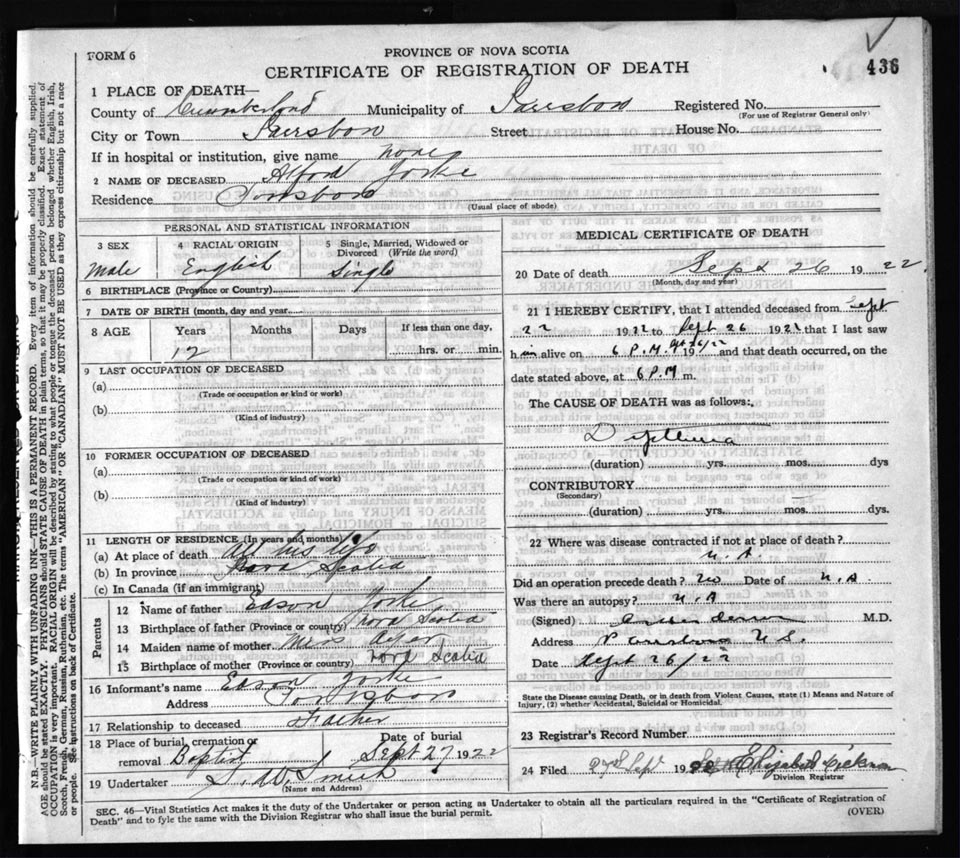 FORM 6
PROVINCE OF NOVA SCOTIA
CERTIFICATE OF REGISTRATION OF DEATH
436
1 PLACE OF DEATH—
County of Cumberland Municipality of Parrsboro Registered No.
(For use of Registrar General only)
City or Town Parrsboro Street House No.
If in hospital or institution, give name none
2 NAME OF DECEASED Alford Yorke
Residence Parrsboro
(Usual place of abode)
PERSONAL AND STATISTICAL INFORMATION
3 SEX 4 RACIAL ORIGIN 5 Single, Married, Widowed or Divorced (Write the word)
Male English Single
6 BIRTHPLACE (Province or Country)
7 DATE OF BIRTH (month, day and year)
8 AGE Years Months Days If less than one day,
12 hrs. or min.
9 LAST OCCUPATION OF DECEASED
(a)
(Trade or occupation or kind or work)
(b)
(Kind of industry)
10 FORMER OCCUPATION OF DECEASED
(a)
(Trade or occupation or kind of work)
(b)
(Kind of industry)
11 LENGTH OF RESIDENCE (In years and months)
(a) At place of death All his life
(b) In province Nova Scotia
(c) In Canada (if an immigrant)
Parents
12 Name of father Edson Yorke
13 Birthplace of father (Province or country) Nova Scotia
14 Maiden name of mother Miss
15 Birthplace of mother (Province or country) Nova Scotia
16 Informant's name Edson Yorke
Address Parrsboro
17 Relationship to deceased Father
18 Place of burial, cremation or removal Baptist Date of burial Sept 27 1922
19 Undertaker S. W. Smith
(Name and Address)
MEDICAL CERTIFICATE OF DEATH
20 Date of death Sept 26 1922
(Month, day and year)
21 I HEREBY CERTIFY, that I attended deceased from Sept
22 1922 to Sept 26 1922 that I last saw
him alive on 6 P.M. Sept 26/22 19 and that death occurred, on the
date stated above, at 6 P.M m.
The CAUSE OF DEATH was as follows:
Diptheria
(duration) yrs. mos. dys
CONTRIBUTORY
(Secondary)
(duration) yrs. mos. dys
22 Where was disease contracted if not at place of death?
N.A.
Did an operation precede death? No Date of N.A.
Was there an autopsy? N.A
(Signed) M.D.
Address Parrsboro N.S.
Date Sept 26/22
State the Disease causing Death, or in death from Violent Causes, state (1) Means and Nature of
Injury, (2) whether Accidental, Suicidal or Homicidal.
23 Registrar's Record Number
24 Filed 27th Sept 1922 Elizabeth
Division Registrar
SEC. 46—Vital Statistics Act makes it the duty of the Undertaker or person acting as Undertaker to obtain all the particulars required in the "Certificate of Registration of
Death" and to fyle the same with the Division Registrar who shall issue the burial permit.
(OVER)
N.B.—WRITE PLAINLY WITH UNFADING INK—THIS IS A PERMANENT RECORD. Every item of information should be carefully supplied.
AGE should be stated EXACTLY. PHYSICIANS should STATE CAUSE OF DEATH in plain terms, so that it may be properly classified. Exact statement of
OCCUPATION is very important. RACIAL ORIGIN will be described by stating to what people or tongue the deceased person belonged whether English, Irish,
Scotch, French, German, Russian, Ruthenian, etc. The terms "AMERICAN" OR "CANADIAN" MUST NOT BE USED as they express citizenship but not a race
or people. See instructions on back of Certificate.